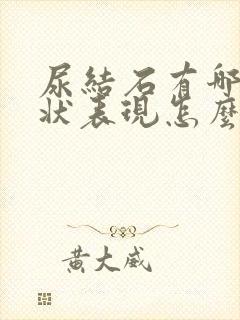 尿結石有哪
狀表現怎麼
黃大威